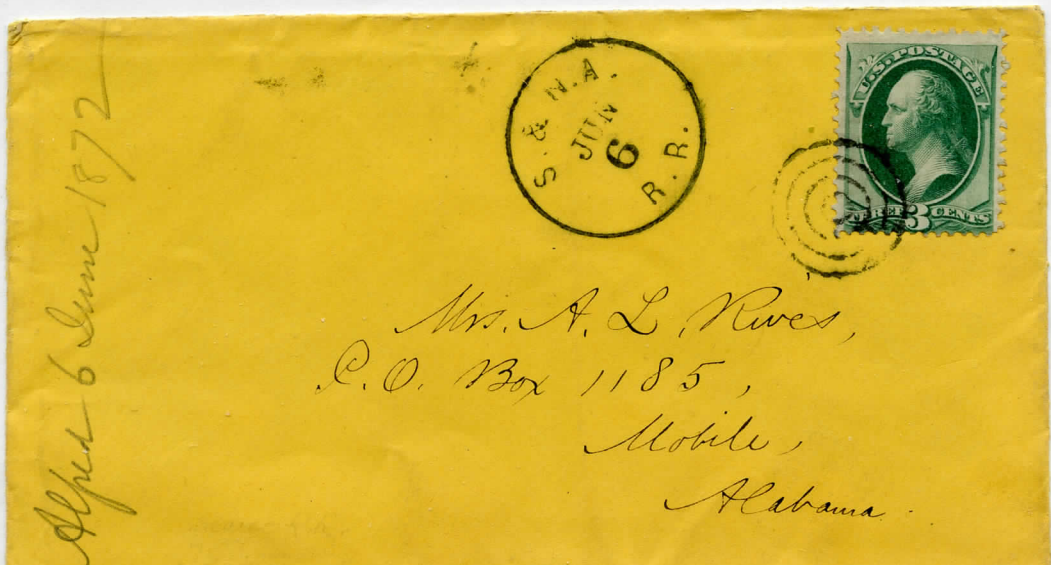 Alfred 6 June 1872
S. & N. A.
JUN
6
R. R.
U.S. POSTAGE
THREE 3 CENTS
Mrs. A. L. Rives,
P.O. Box 1185,
Mobile,
Alabama.